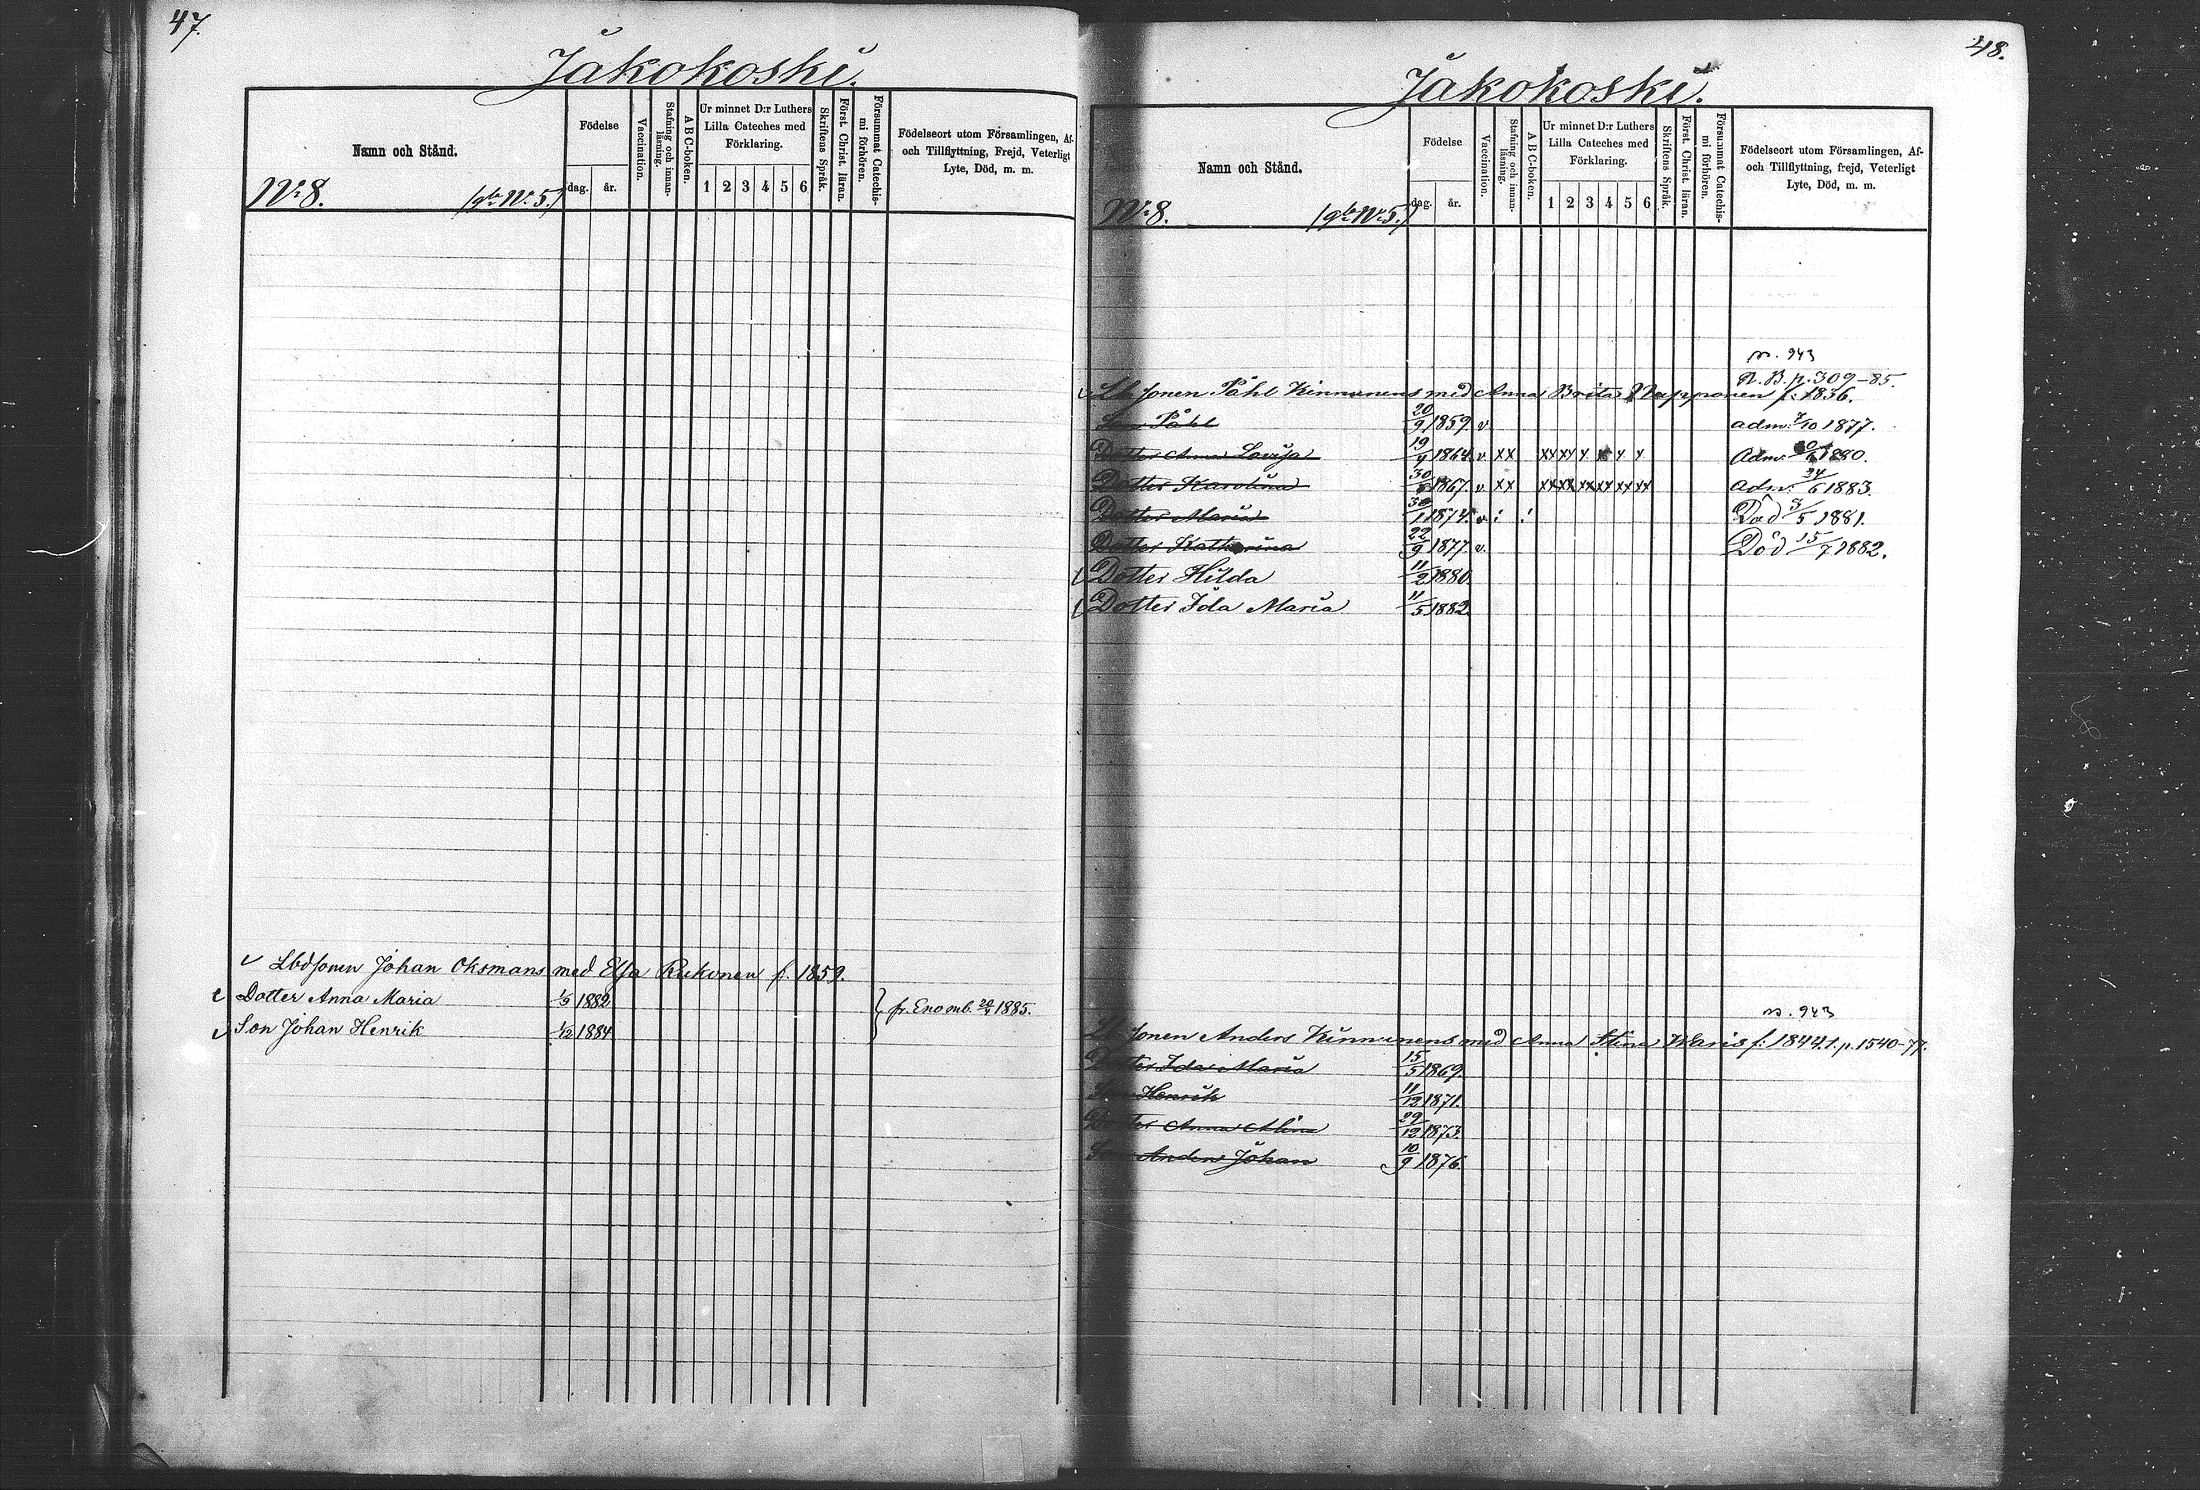 47.
Jakokoski.
Namn och Stånd.
Födelse
dag. år.
Vaccination.
Stafning och innan-läsning.
A B C-boken.
Ur minnet D:r Luthers
Lilla Cateches med
Förklaring.
1 2 3 4 5 6
Skriftens Språk.
Först. Christ. läran.
Försummat Catechis-mi förhören.
Födelseort utom Församlingen, Af-
och Tillflyttning, Frejd, Veterligt
Lyte, Död, m. m.
No 8. No 5.
v Lbdsonen Johan Oksmans med Elsa f. 1859.
Dotter Anna Maria 1/5 1882
fr. Eno 1885.
v Son Johan Henrik 1/12 1884
48.
Jakokoski.
Namn och Stånd.
Födelse
dag. år.
Vaccination.
Stafning och innan-läsning.
A B C-boken.
Ur minnet D:r Luthers
Lilla Cateches med
Förklaring.
1 2 3 4 5 6
Skriftens Språk.
Först. Christ. läran.
Försummat Catechis-mi förhören.
Födelseort utom Församlingen, Af-
och Tillflyttning, frejd, Veterligt
Lyte, Död, m. m.
No 8. No 5.
n. 943
p. 309-85.
sonen Påhl Kinnunens med Anna Brita f. 1836.
Son Påhl 20/9 1859. v. adm. 7/10 1877.
Dotter Anna Lovisa 19/9 1864 v xx xx xx x x x x Adm. 1880.
Dotter Karolina 1867. v. xx xx xx xx xx xx xx adm. 24/6 1883.
Dotter Maria 30/1 1874. v. Död 3/5 1881.
Dotter Katharina 22/9 1877. v. Död 15/7 1882.
Dotter Hilda 11/2 1880.
Dotter Ida Maria 11/5 1882.
n. 943
sonen Anders Kinnunens med Anna Stina Waris f. 1844. p. 1540-77.
Dotter Ida Maria 15/5 1869.
Son Henrik 11/12 1871.
Dotter Anna Alina 29/12 1873.
Son Anders Johan 10/9 1876.